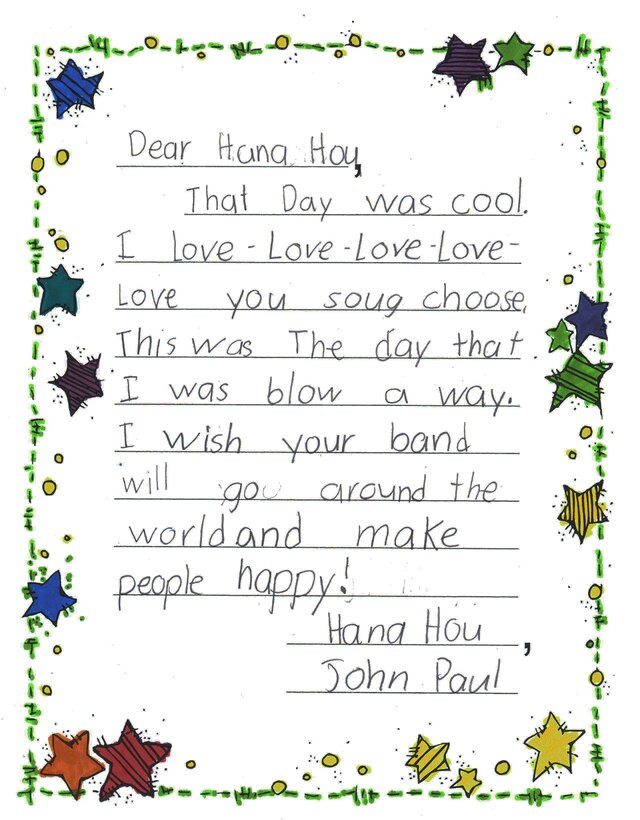 Dear Hana Hou,
That Day was cool.
I love - Love - Love - Love -
Love you soug choose.
This was The day that
I was blow a way.
I wish your band
will go around the
world and make
people happy!
Hana Hou,
John Paul